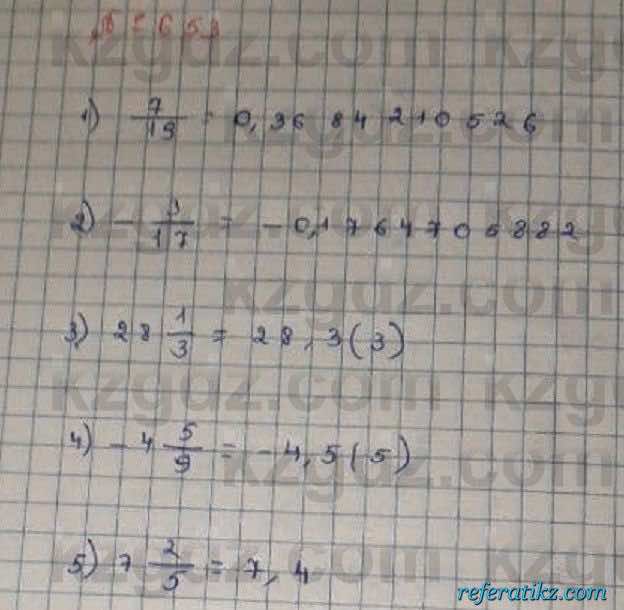 № 653
1) 7/19 = 0,3684210526
2) - 3/17 = -0,1764705882
3) 28 1/3 = 28,3(3)
4) -4 5/9 = -4,5(5)
5) 7 2/5 = 7,4
kzgdz.com
referatikz.com